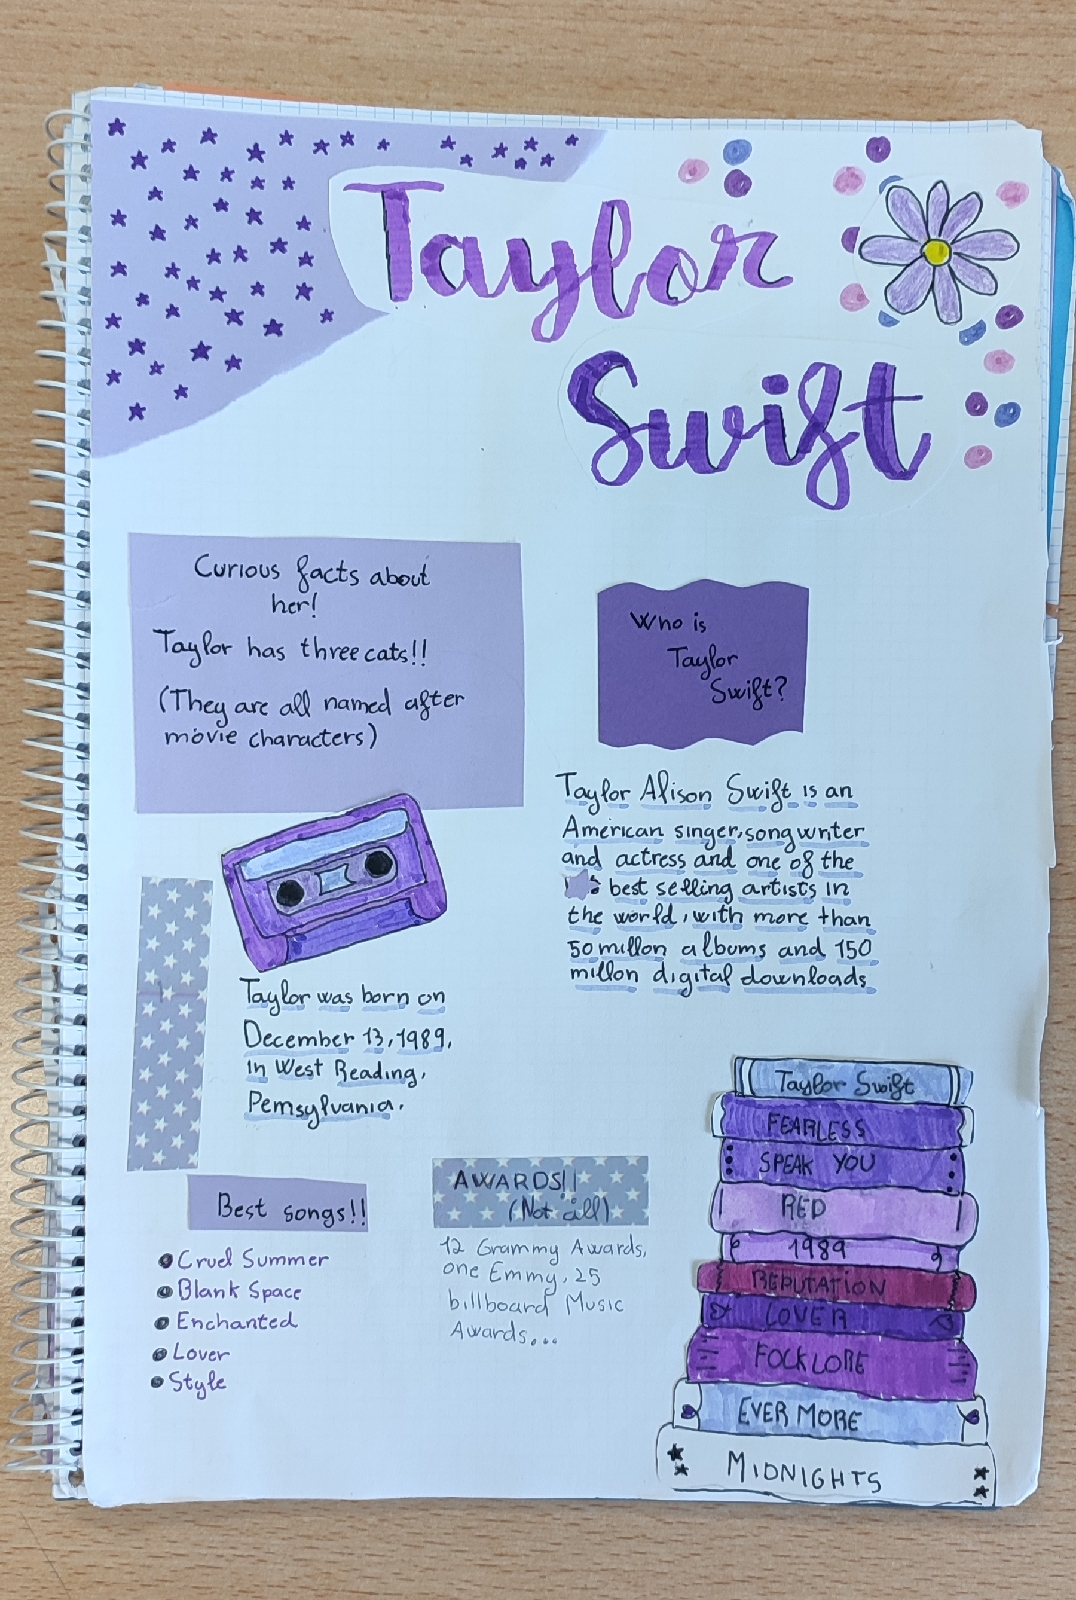 Taylor
Swift
Curious facts about
her!
Taylor has three cats!!
(They are all named after
movie characters)
Who is
Taylor
Swift?
Taylor Alison Swift is an
American singer, songwriter
and actress and one of the
best selling artists in
the world, with more than
50 millon albums and 150
millon digital downloads
Taylor was born on
December 13, 1989,
in West Reading,
Pemsylvania.
Best songs!!
Cruel Summer
Blank Space
Enchanted
Lover
Style
AWARDS!!
(Not all)
12 Grammy Awards,
one Emmy, 25
billboard Music
Awards...
Taylor Swift
FEARLESS
SPEAK YOU
RED
1989
REPUTATION
LOVER
FOCKLORE
EVER MORE
MIDNIGHTS